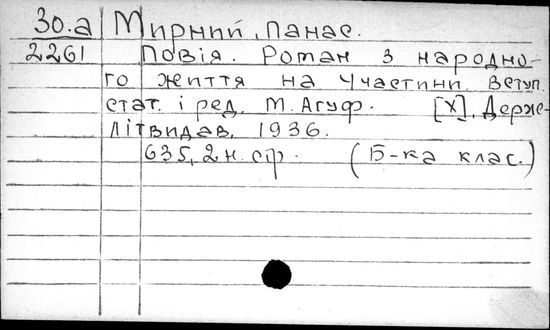 30.а Мирний, Панас.
2261 Повія. Роман з народно-
го життя на 4 частини. Вступ.
стат. і ред. М. Агуф. [Х], Держ-
літвидав, 1936.
635, 2 н. стр. (Б-ка клас.)